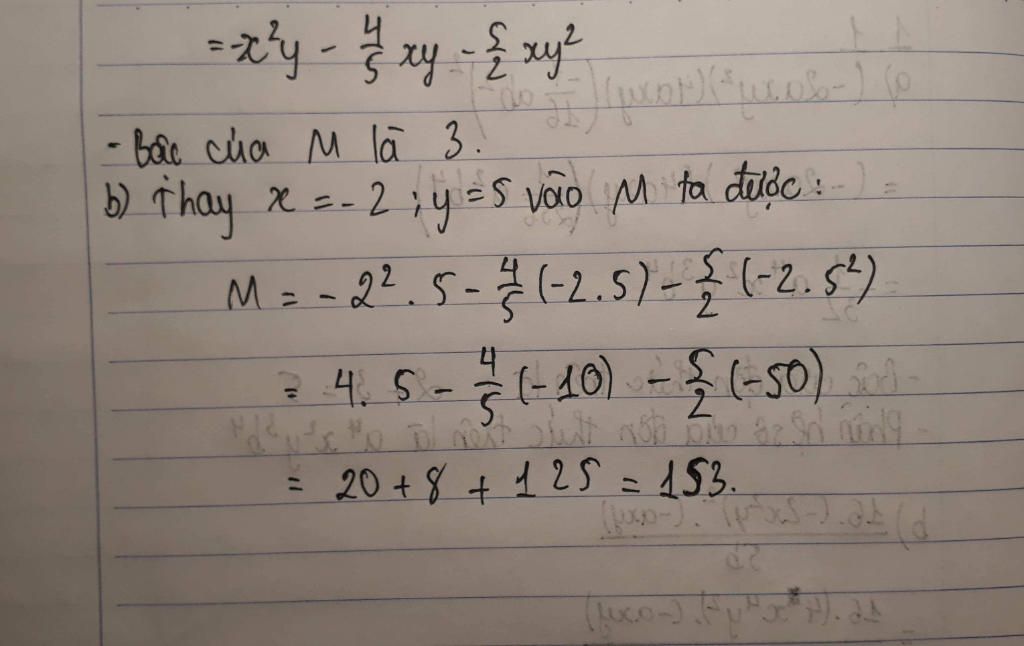 = -x²y - 4/5 xy - 5/2 xy²
- Bậc của M là 3.
b) Thay x = -2 ; y = 5 vào M ta được:
M = -2² . 5 - 4/5 (-2.5) - 5/2 (-2.5²)
= 4.5 - 4/5 (-10) - 5/2 (-50)
= 20 + 8 + 125 = 153.